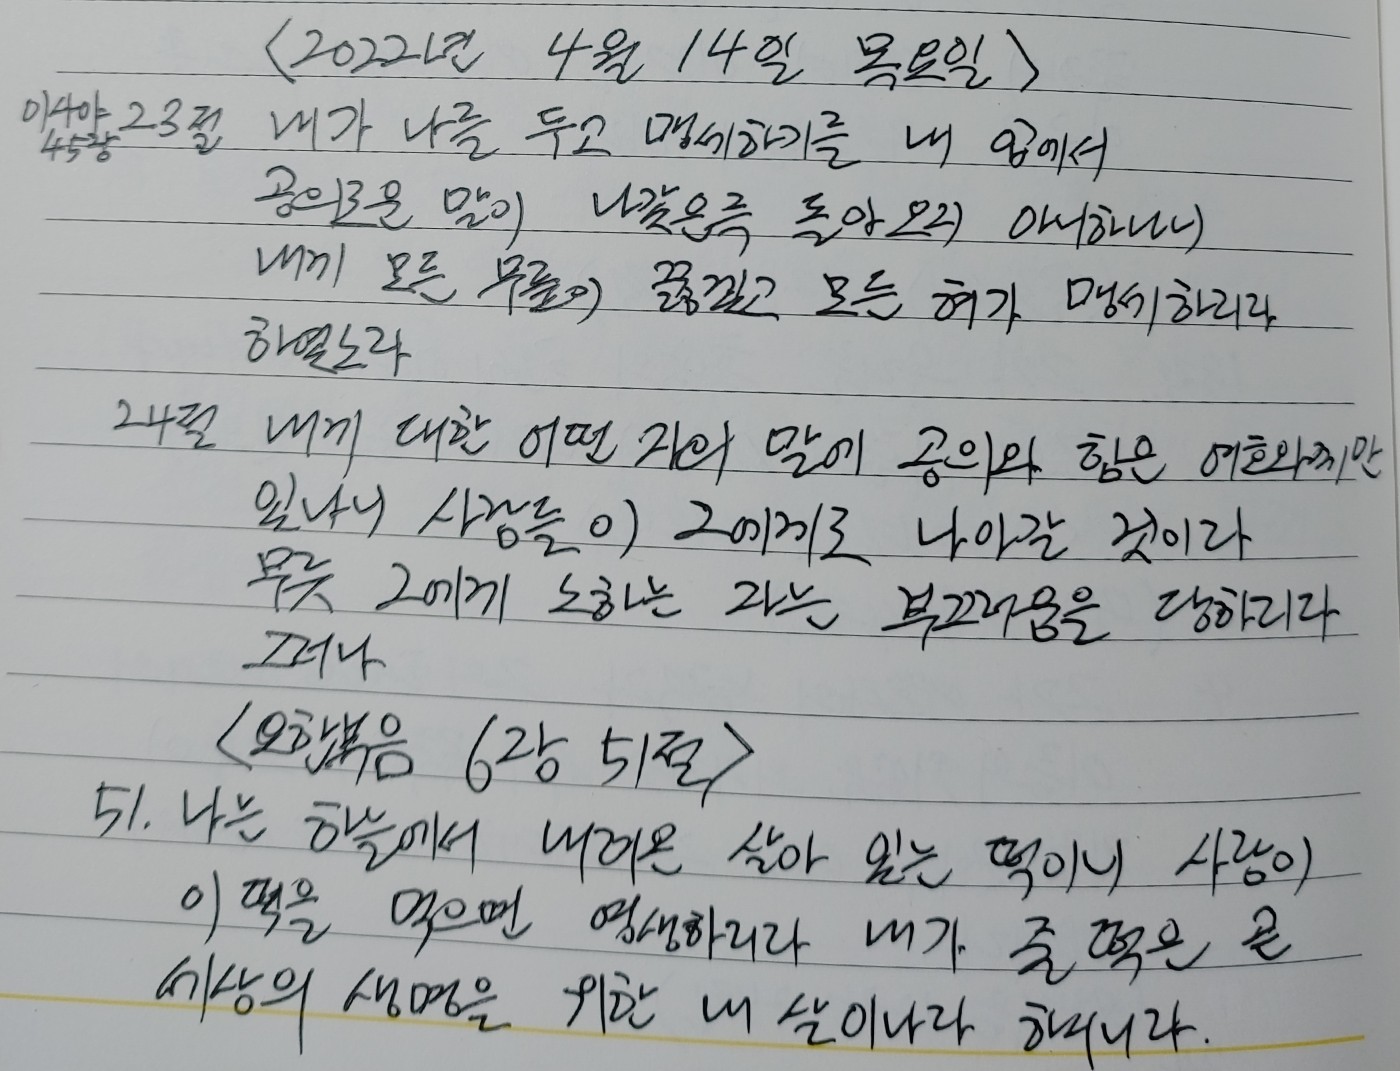 <2022년 4월 14일 목요일>
이사야 45장 23절 내가 나를 두고 맹세하기를 내 입에서
공의로운 말이 나갔은즉 돌아오지 아니하나니
내게 모든 무릎이 꿇겠고 모든 혀가 맹세하리라
하였노라
24절 내게 대한 어떤 자의 말에 공의와 힘은 여호와께만
있나니 사람들이 그에게로 나아갈 것이라
무릇 그에게 노하는 자는 부끄러움을 당하리라
그러나
<요한복음 6장 51절>
51. 나는 하늘에서 내려온 살아 있는 떡이니 사람이
이 떡을 먹으면 영생하리라 내가 줄 떡은 곧
세상의 생명을 위한 내 살이니라 하시니라.